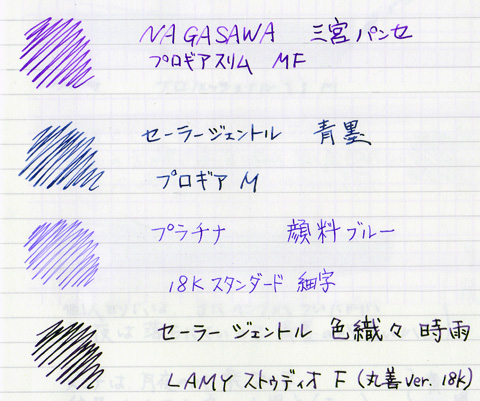 NAGASAWA 三宮パンセ
プロギアスリム MF
セーラージェントル 青墨
プロギア M
プラチナ 顔料ブルー
18K スタンダード 細字
セーラー ジェントル 色織々 時雨
LAMY ストゥディオ F (丸善 ver. 18k)